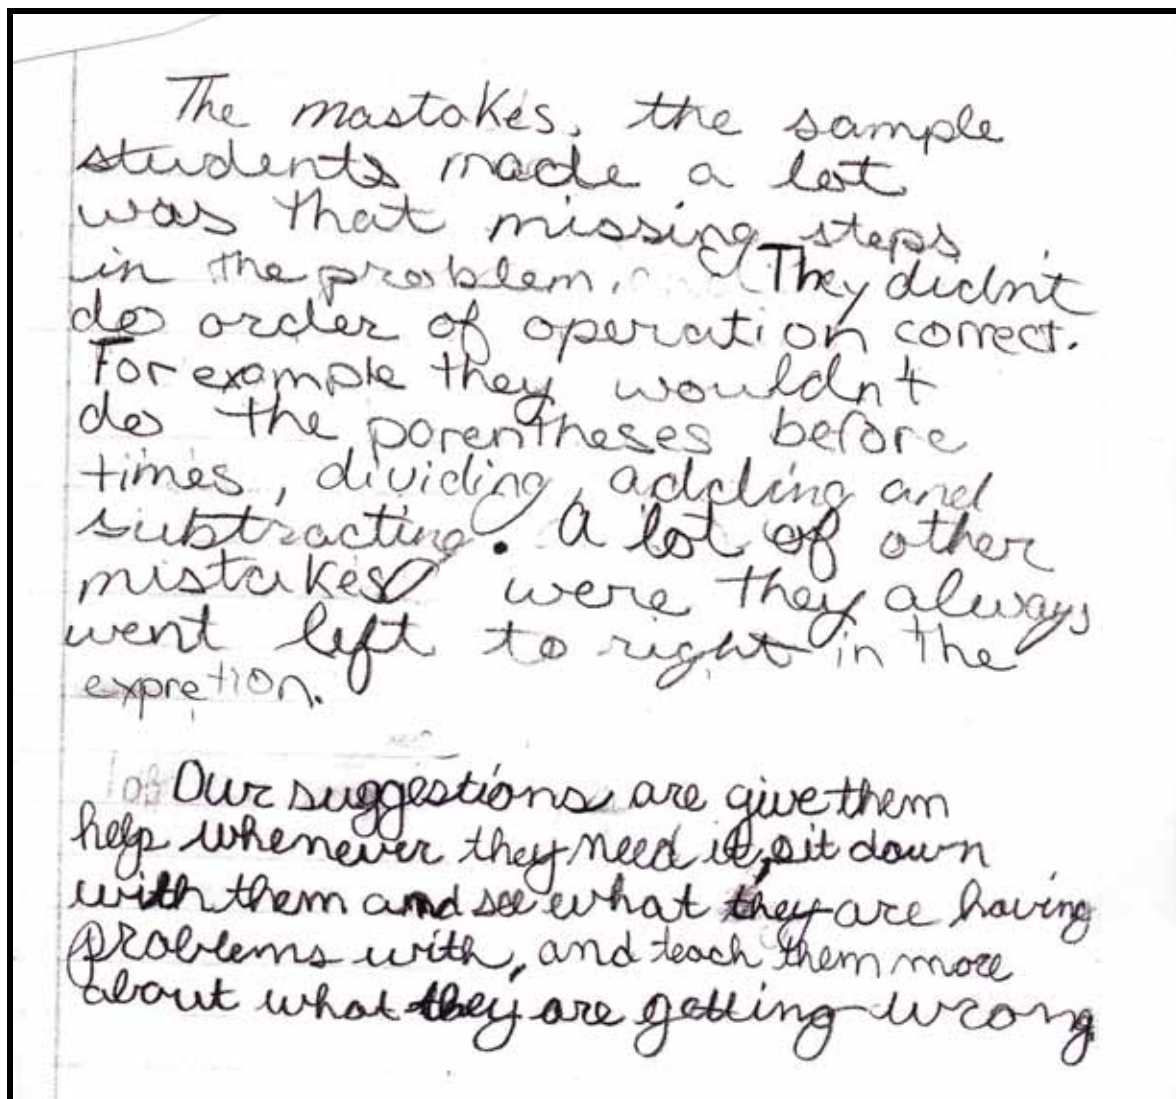 The mastakes, the sample
students made a lot
was that missing steps
in the problem. They didn't
do order of operation correct.
For example they wouldn't
do the parentheses before
times, dividing, adding and
subtracting. A lot of other
mistakes were they always
went left to right in the
expretion.
Our suggestions are give them
help whenever they need it, sit down
with them and see what they are having
problems with, and teach them more
about what they are getting wrong.